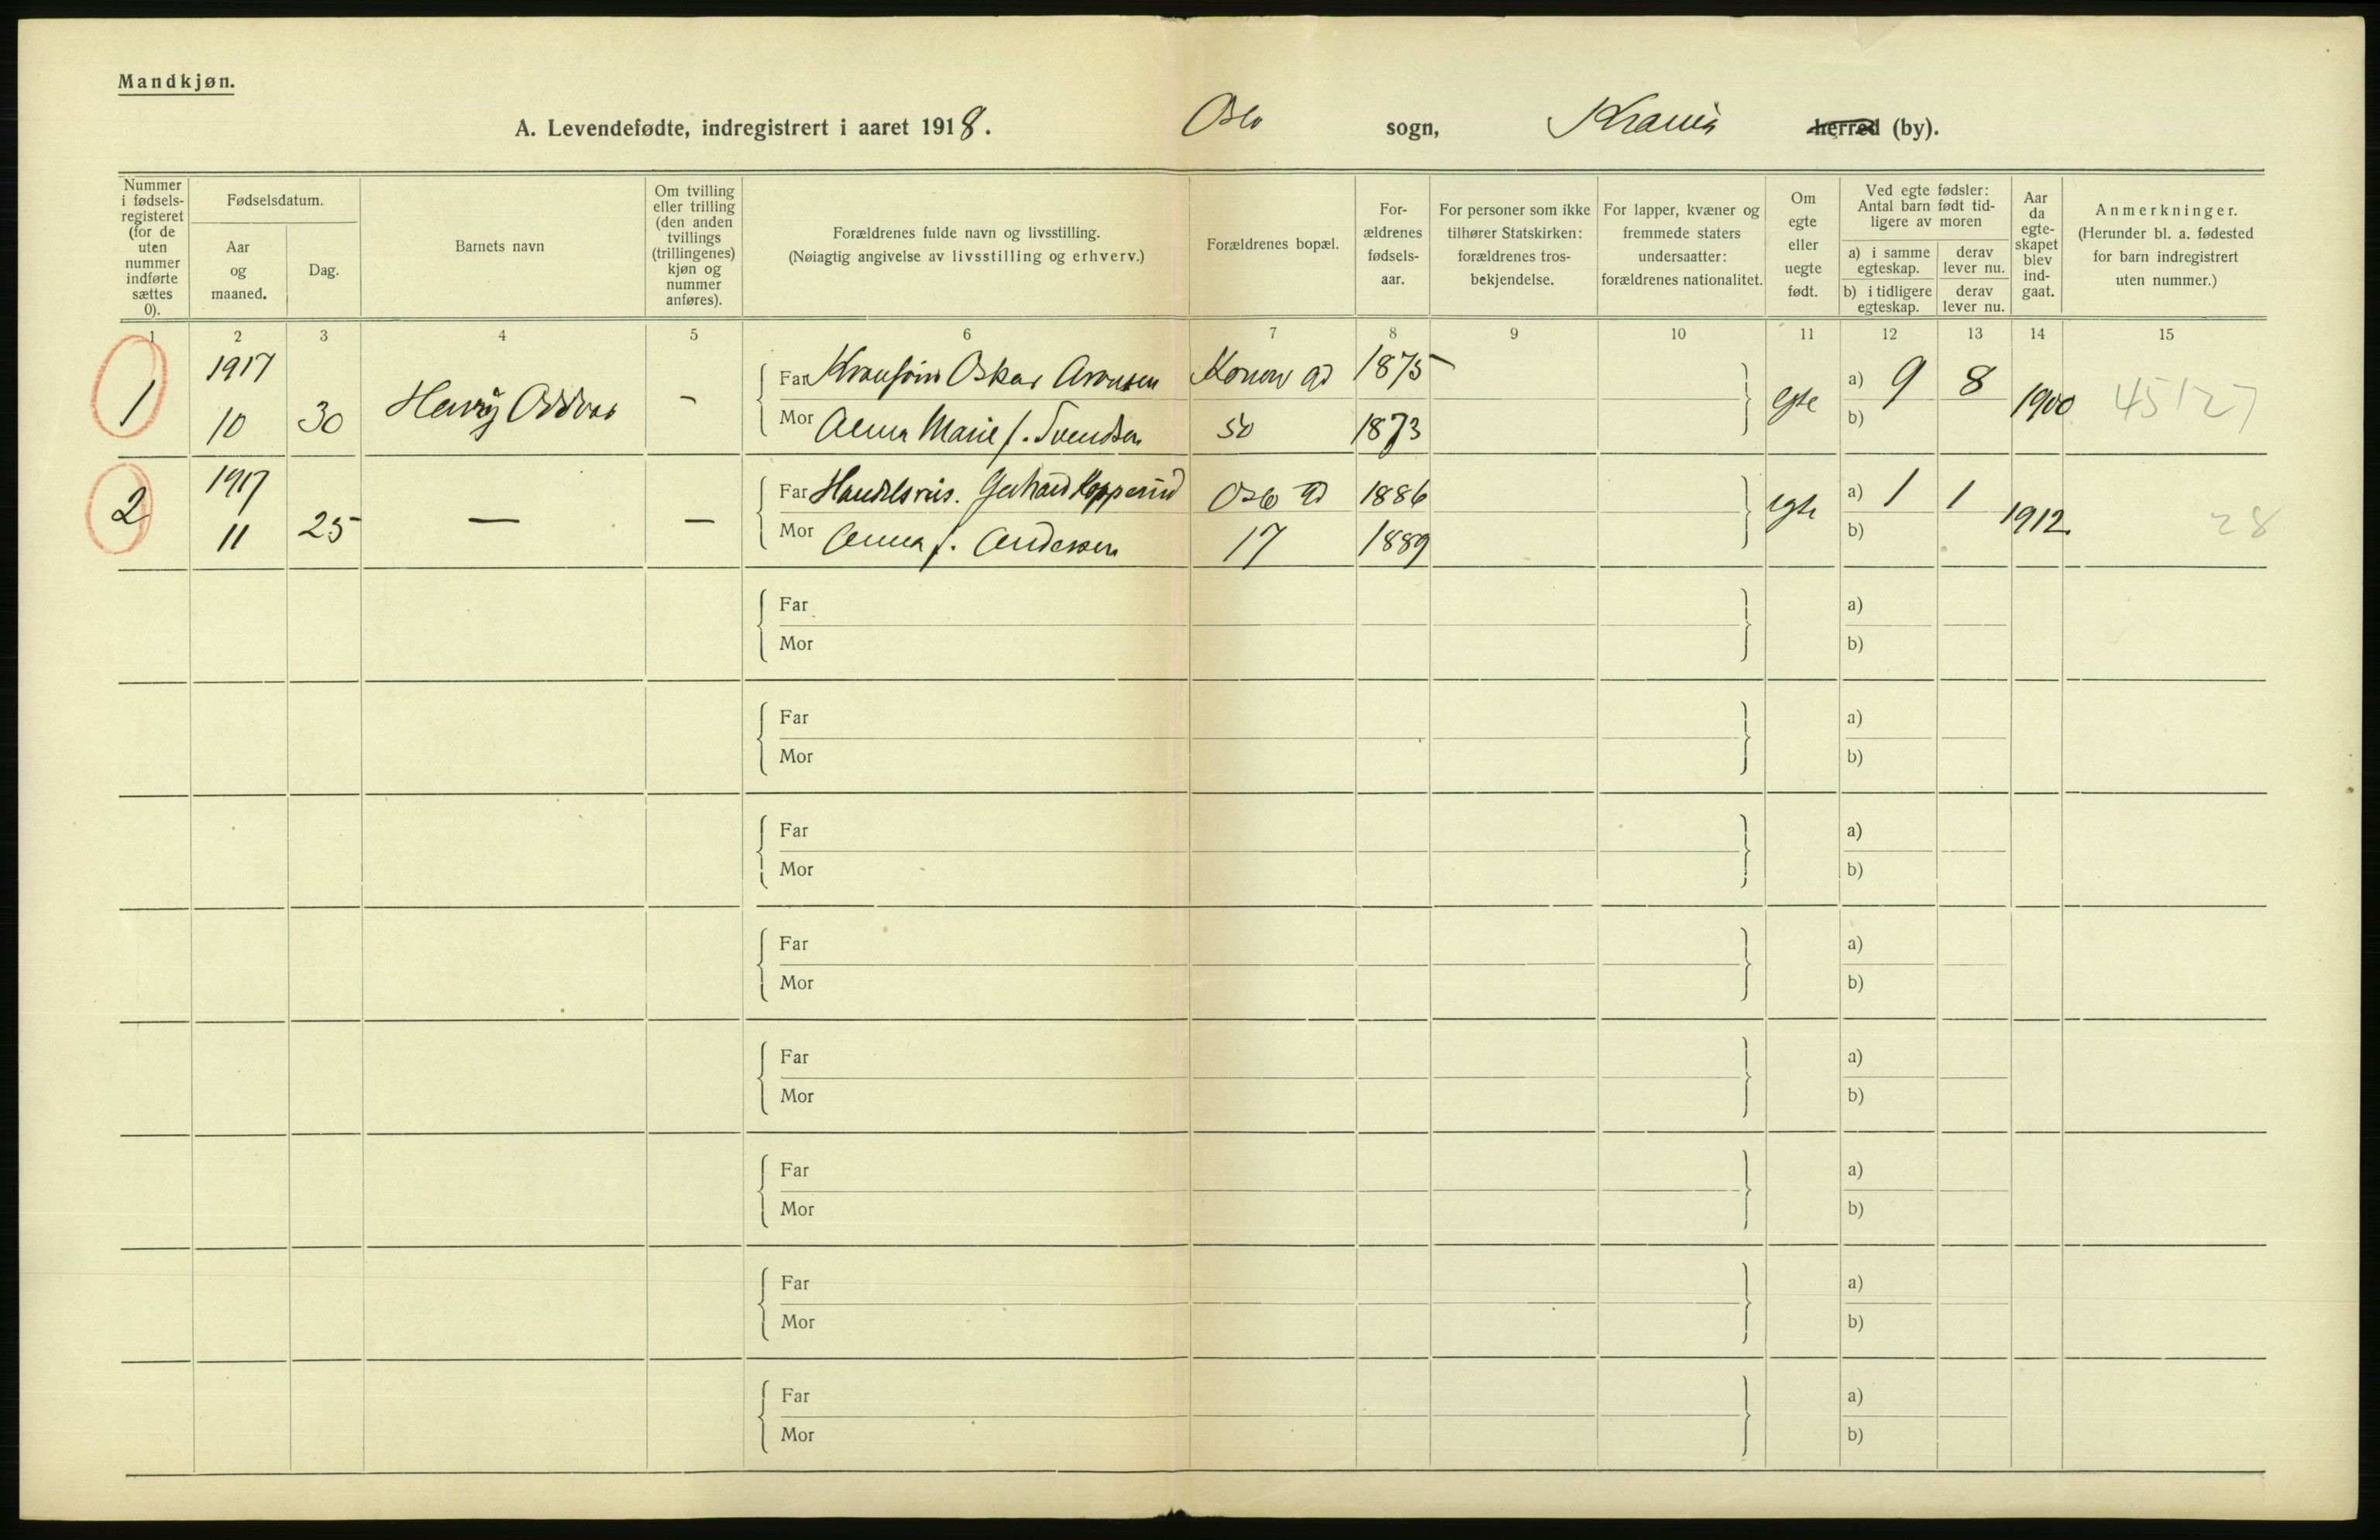 Mandkjøn.
A. Levendefødte, indregistrert i aaret 1918. Oslo sogn, Krania herred (by).
Nummer i fødselsregisteret (for de uten nummer indførte sættes 0).
Fødselsdatum.
Aar og maaned.
Dag.
Barnets navn
Om tvilling eller trilling (den anden tvillings (trillingenes) kjøn og nummer anføres).
Forældrenes fulde navn og livsstilling.
(Nøiagtig angivelse av livsstilling og erhverv.)
Forældrenes bopæl.
Forældrenes fødselsaar.
For personer som ikke tilhører Statskirken: forældrenes trosbekjendelse.
For lapper, kvæner og fremmede staters undersaatter: forældrenes nationalitet.
Om egte eller uegte født.
Ved egte fødsler: Antal barn født tidligere av moren
a) i samme egteskap.
derav lever nu.
b) i tidligere egteskap.
derav lever nu.
Aar da egteskapet blev indgaat.
Anmerkninger.
(Herunder bl. a. fødested for barn indregistrert uten nummer.)
1 2 3 4 5 6 7 8 9 10 11 12 13 14 15
1 1917 10 30 Henry Oddvar -
Far Oskar Aronsen Konow gd 1875
Mor Anna Marie f. Svendsen 50 1873
egte a) 9 8 1900 45127
b)
2 1917 11 25 — —
Far Handelsreis. Gerhard Kopperud Oslo gd 1886
Mor Anna f. Andersen 17 1889
egte a) 1 1 1912 28
b)
Far a)
Mor b)
Far a)
Mor b)
Far a)
Mor b)
Far a)
Mor b)
Far a)
Mor b)
Far a)
Mor b)
Far a)
Mor b)
Far a)
Mor b)